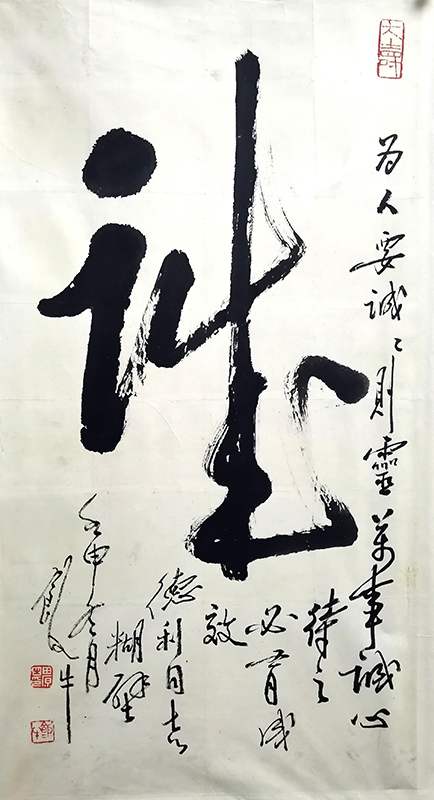 诚
为人要诚〻則靈萬事诚心
待之
必有成
效
德利同志
糊壁
壬申冬月
牛